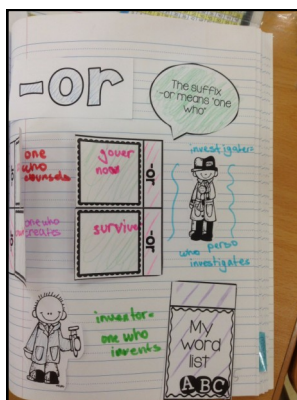 -or
The suffix
-or means 'one
who'
one
who
counsels
gover
nor
-or
investigator=
one who
creates
surviv
-or
who perso
investigates
investor=
one who
invents
My
word
list
ABC